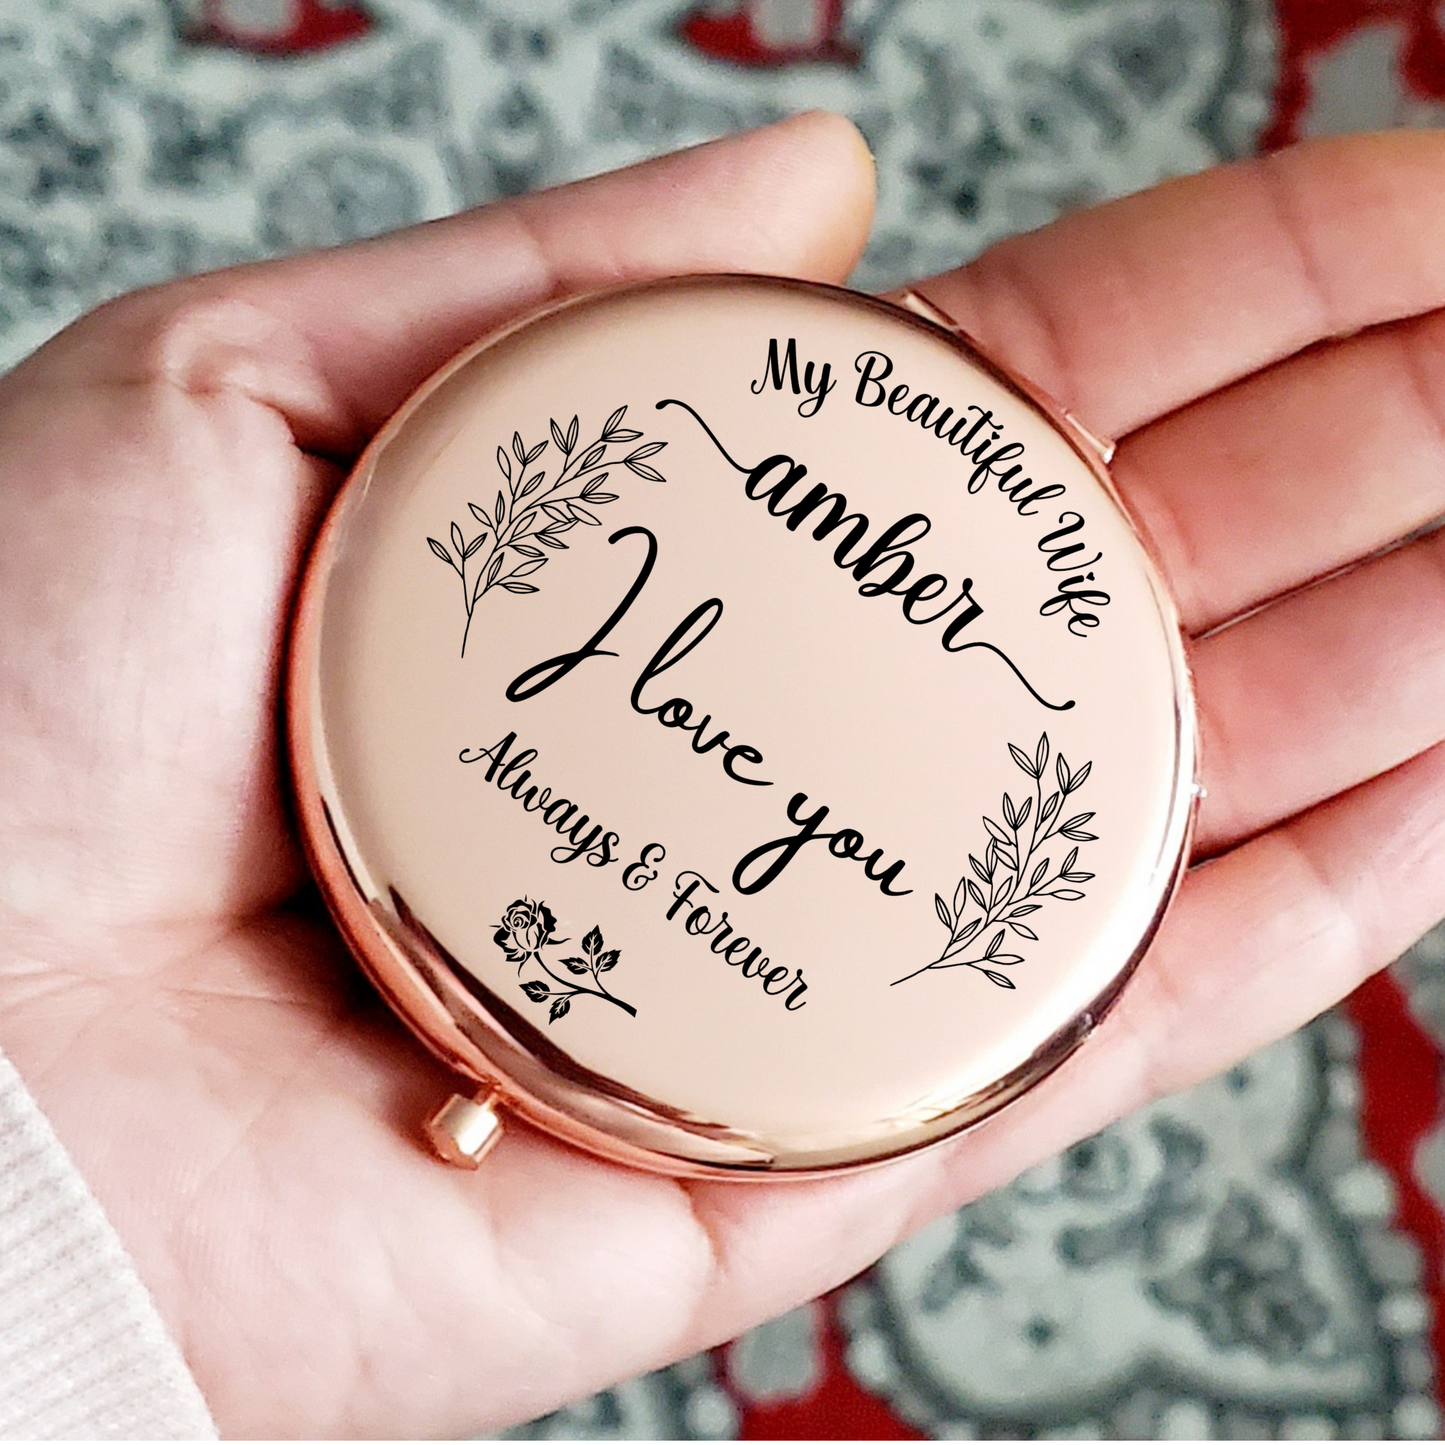 My Beautiful Wife
amber
I love you
Always & Forever